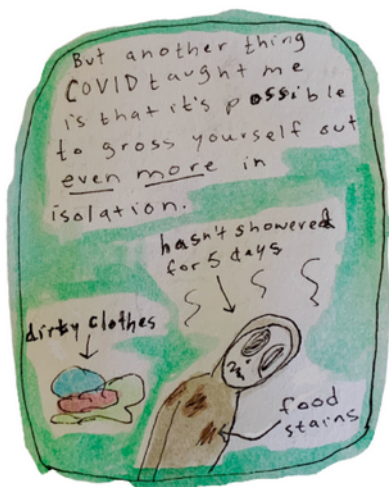 But another thing
COVID taught me
is that it's possible
to gross yourself out
even more in
isolation.
hasn't showered
for 5 days
dirty clothes
food
stains